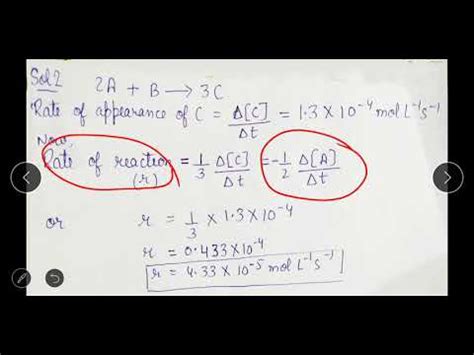 Sol 2
2A + B → 3C
Rate of appearance of C = Δ[C]/Δt = 1.3 X 10⁻⁴ mol L⁻¹ s⁻¹
Now,
Rate of reaction (r) = 1/3 Δ[C]/Δt = -1/2 Δ[A]/Δt
or r = 1/3 x 1.3 X 10⁻⁴
r = 0.433 X 10⁻⁴
r = 4.33 X 10⁻⁵ mol L⁻¹ s⁻¹